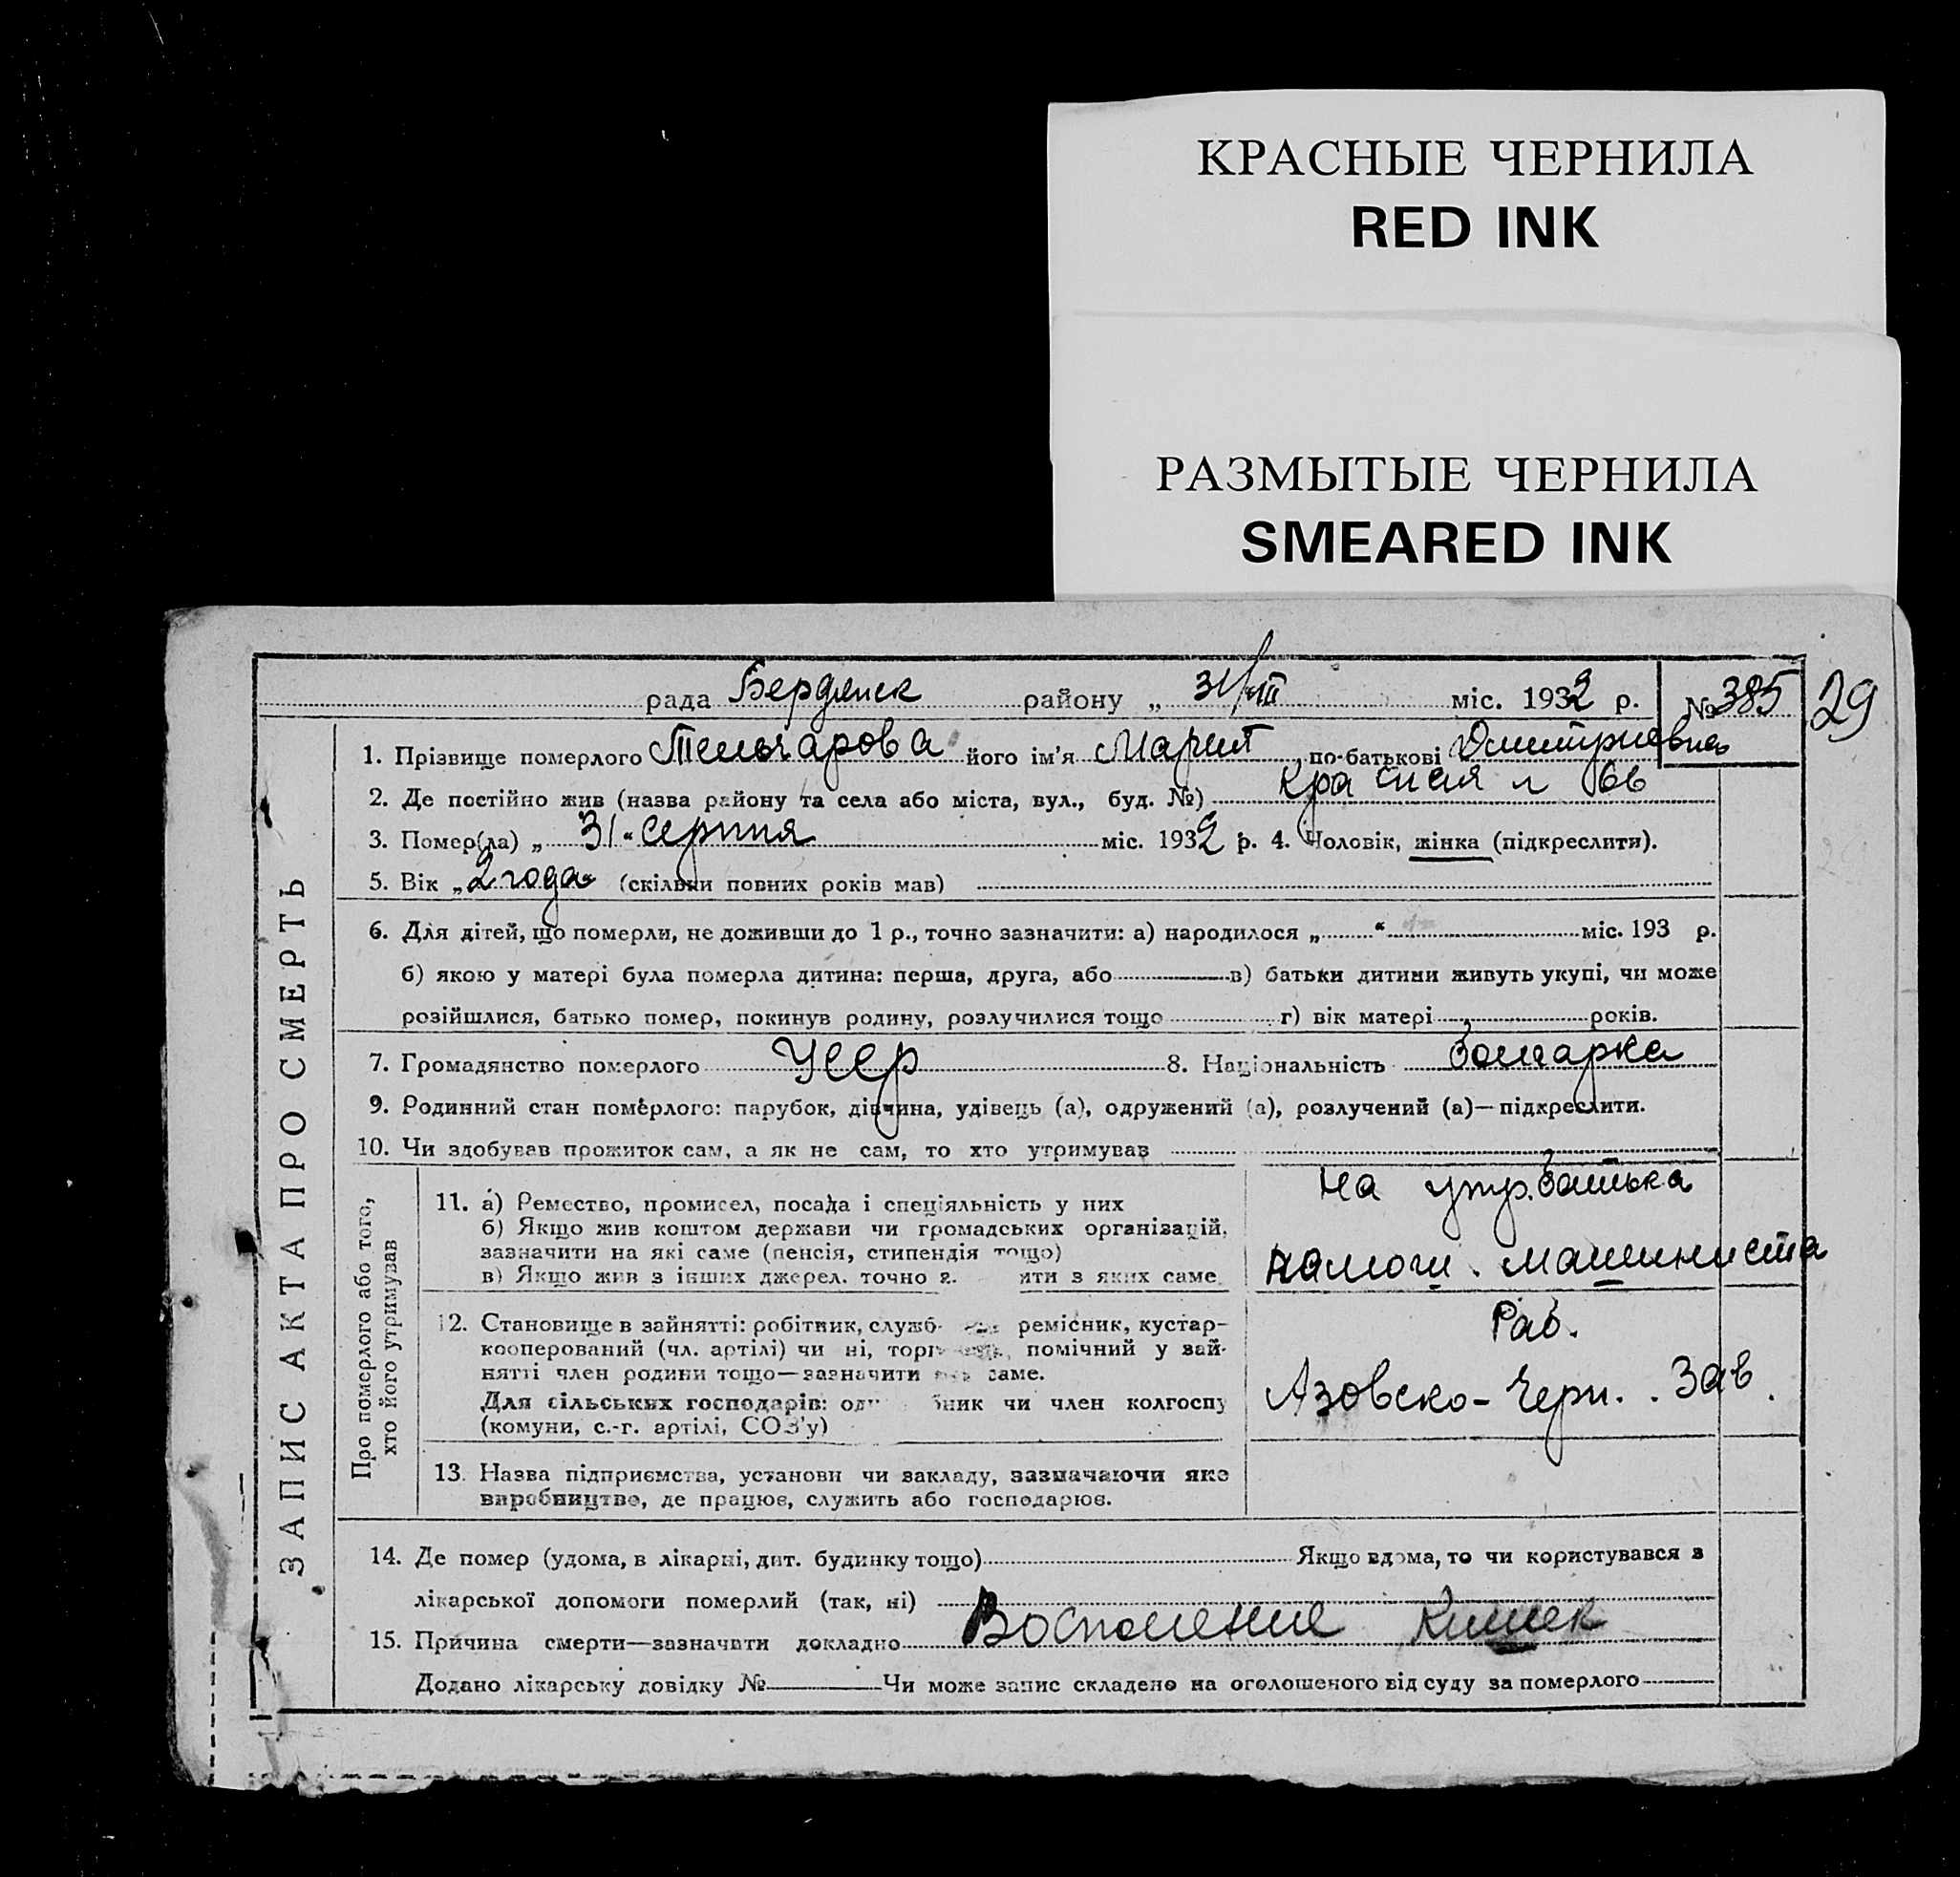 КРАСНЫЕ ЧЕРНИЛА
RED INK
РАЗМЫТЫЕ ЧЕРНИЛА
SMEARED INK
рада Бердянск району „ 31/VIII міс. 1932 р. № 385 29
ЗАПИС АКТА ПРО СМЕРТЬ
1. Прізвище померлого його ім'я Мария по-батькові Дмитриевна
2. Де постійно жив (назва району та села або міста, вул., буд. №) 66
3. Помер(ла) „ 31 “ серпня міс. 1932 р. 4. Чоловік, жінка (підкреслити).
5. Вік „ 2 года “ (скільки повних років мав)
6. Для дітей, що померли, не доживши до 1 р., точно зазначити: а) народилося „ “ міс. 193 р.
б) якою у матері була померла дитина: перша, друга, або в) батьки дитини живуть укупі, чи може
розійшлися, батько помер, покинув родину, розлучилися тощо г) вік матері років.
7. Громадянство померлого Усср 8. Національність Болгарка
9. Родинний стан померлого: парубок, дівчина, удівець (а), одружений (а), розлучений (а)—підкреслити.
10. Чи здобував прожиток сам, а як не сам, то хто утримував
Про померлого або того,
хто його утримував
11. а) Ремество, промисел, посада і спеціяльність у них
б) Якщо жив коштом держави чи громадських організацій,
зазначити на які саме (пенсія, стипендія тощо)
в) Якщо жив з інших джерел. точно з ити з яких саме
на утр. батька
машиниста
12. Становище в зайнятті: робітник, служб ремісник, кустар-
кооперований (чл. артілі) чи ні, торг помічний у зай-
нятті член родини тощо—зазначити саме.
Для сільських господарів: од бник чи член колгоспу
(комуни, с.-г. артілі, СОЗ'у)
Раб.
Азовско-Черн. . Зав.
13. Назва підприємства, установи чи закладу, зазначаючи яке
виробництво, де працює, служить або господарює.
14. Де помер (удома, в лікарні, дит. будинку тощо) Якщо вдома, то чи користувався з
лікарської допомоги померлий (так, ні)
15. Причина смерти—зазначити докладно Воспаление Кишек
Додано лікарську довідку № Чи може запис складено на оголошеного від суду за померлого